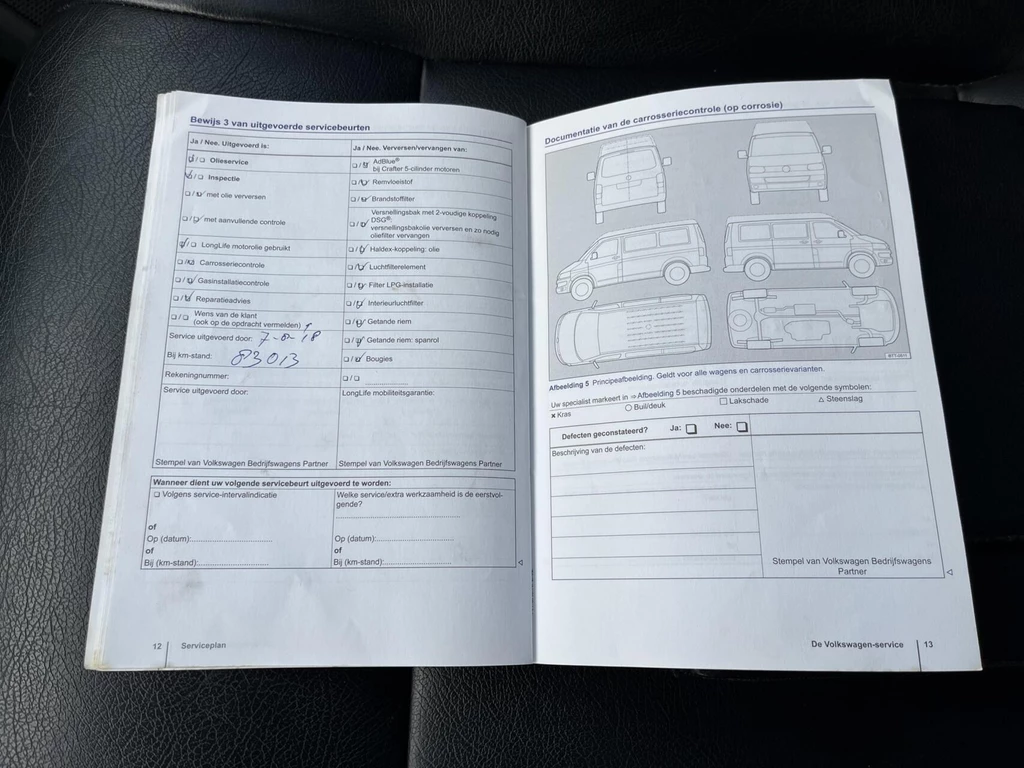 Bewijs 3 van uitgevoerde servicebeurten
Ja / Nee. Uitgevoerd is:
☑/☐ Olieservice
☑/☐ Inspectie
☐/☑ met olie verversen
☐/☑ met aanvullende controle
☑/☐ LongLife motorolie gebruikt
☐/☑ Carrosseriecontrole
☐/☑ Gasinstallatiecontrole
☐/☑ Reparatieadvies
☐/☐ Wens van de klant
(ook op de opdracht vermelden)
Service uitgevoerd door: 7-8-18
Bij km-stand: 83013
Rekeningnummer:
Service uitgevoerd door:
Stempel van Volkswagen Bedrijfswagens Partner
Ja / Nee. Verversen/vervangen van:
☐/☑ AdBlue®
bij Crafter 5-cilinder motoren
☐/☑ Remvloeistof
☐/☑ Brandstoffilter
Versnellingsbak met 2-voudige koppeling
☐/☑ DSG®:
versnellingsbakolie verversen en zo nodig
oliefilter vervangen
☐/☑ Haldex-koppeling: olie
☐/☑ Luchtfilterelement
☐/☑ Filter LPG-installatie
☐/☑ Interieurluchtfilter
☐/☑ Getande riem
☐/☑ Getande riem: spanrol
☐/☑ Bougies
☐/☐ ....................
LongLife mobiliteitsgarantie:
Stempel van Volkswagen Bedrijfswagens Partner
Wanneer dient uw volgende servicebeurt uitgevoerd te worden:
☐ Volgens service-intervalindicatie
of
Op (datum):..............................
of
Bij (km-stand):..........................
Welke service/extra werkzaamheid is de eerstvol-
gende?
..............................................
Op (datum):............................
of
Bij (km-stand):........................
12 Serviceplan
Documentatie van de carrosseriecontrole (op corrosie)
Afbeelding 5 Principeafbeelding. Geldt voor alle wagens en carrosserievarianten.
Uw specialist markeert in ⇒ Afbeelding 5 beschadigde onderdelen met de volgende symbolen:
× Kras ○ Buil/deuk ☐ Lakschade △ Steenslag
Defecten geconstateerd? Ja: ☐ Nee: ☐
Beschrijving van de defecten:
Stempel van Volkswagen Bedrijfswagens
Partner
De Volkswagen-service 13